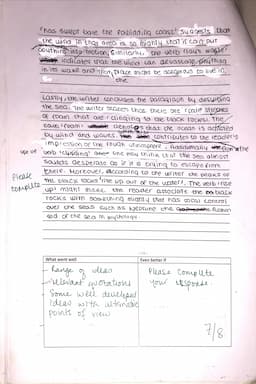 "has swept bare the pebbledng coast" suggests that
the wind in that area is so mighty that it can put
anything into motion. Similarly, the verb
indicates that the wind can devastate anything
in its wake and this place might be dangerous to live in.
Lastly, the writer concludes the paragraph by describing
the sea. The writer states that there are "
of foam that are clinging to the black rocks. The
that the ocean is agitated
by wind and waves contributes to the
impression of the rough atmosphere. Additionally
verb "clinging" the sea almost
sounds desperate as if it is trying to escape from
there. Moreover, according to the writer the peaks of
the black rocks "rise up out of the water". The verb "rise
up" might make the reader associate the
rocks with something mighty that has total control
over the seas such as Neptune the Roman
god of the sea in mythology.
use of
Please
complete
What went well
Even better if
- Range of ideas
- relevant quotations
- Some well developed
ideas with
points of view
Please complete
your response.
7/8